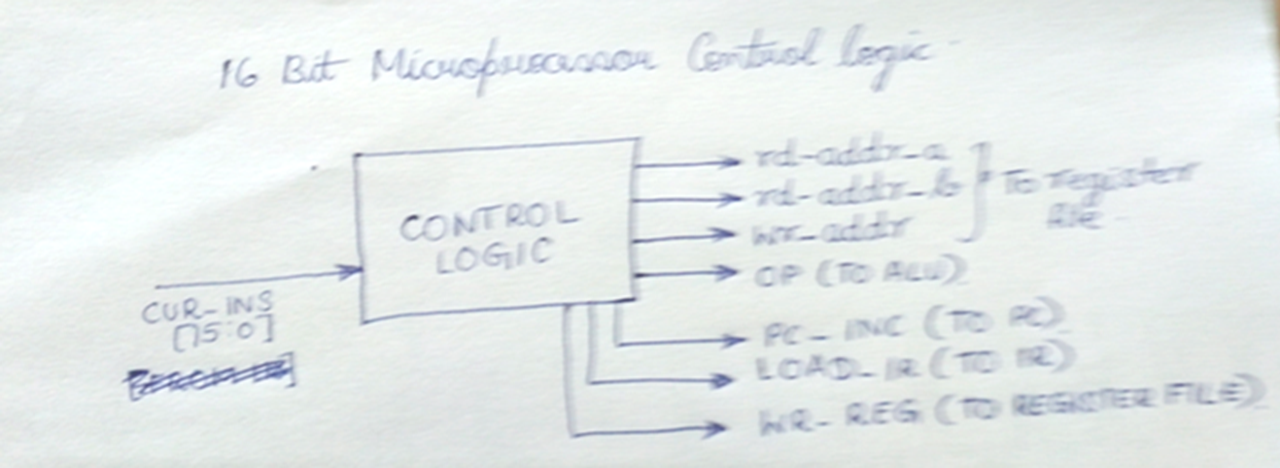 16 Bit Microprocessor Control logic
CONTROL
LOGIC
CUR-INS
[15:0]
rd-addr-a
rd-addr-b
wr-addr
To register
file
OP (TO ALU)
PC-INC (TO PC)
LOAD-IR (TO IR)
WR-REG (TO REGISTER FILE)